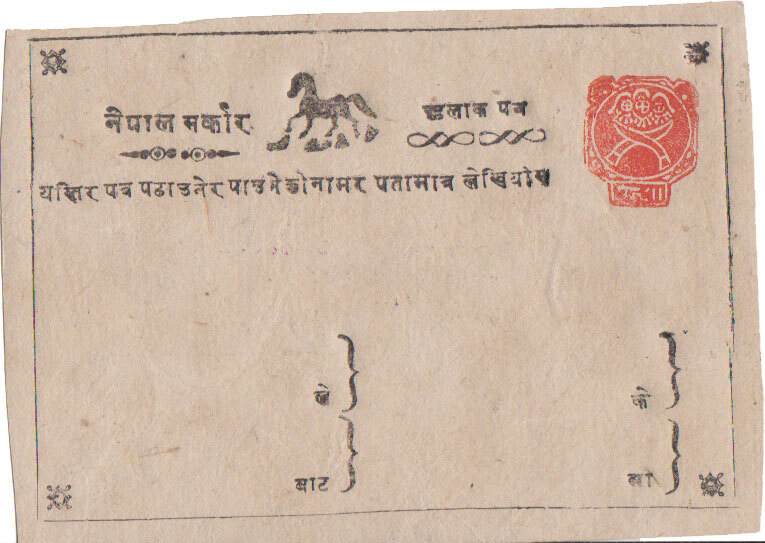 नेपाल सर्कार
हुलाक पत्र
यस्तिर पत्र पठाउनेर पाउनेको नामर पतामात्र लेखियोस्
ले
के
बाट